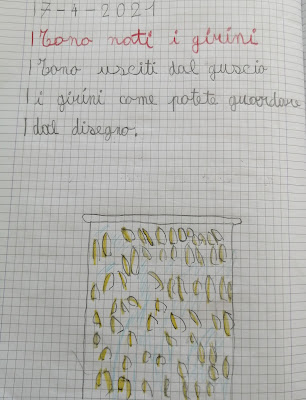 17-4-2021
Sono nati i girini
Sono usciti dal guscio
i girini come potete guardare
dal disegno.